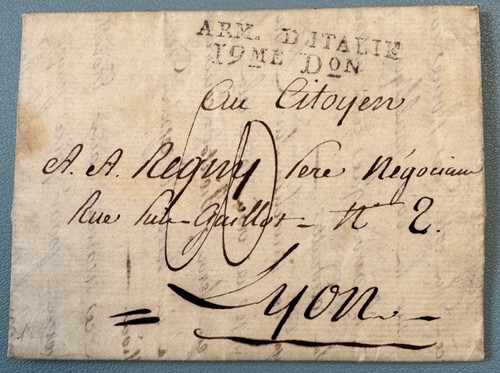 ARM. D'ITALIE
19ME DON
Au Citoyen
A. A. Regny Pere Négociant
Rue Puits-Gaillot - N° 2.
Lyon